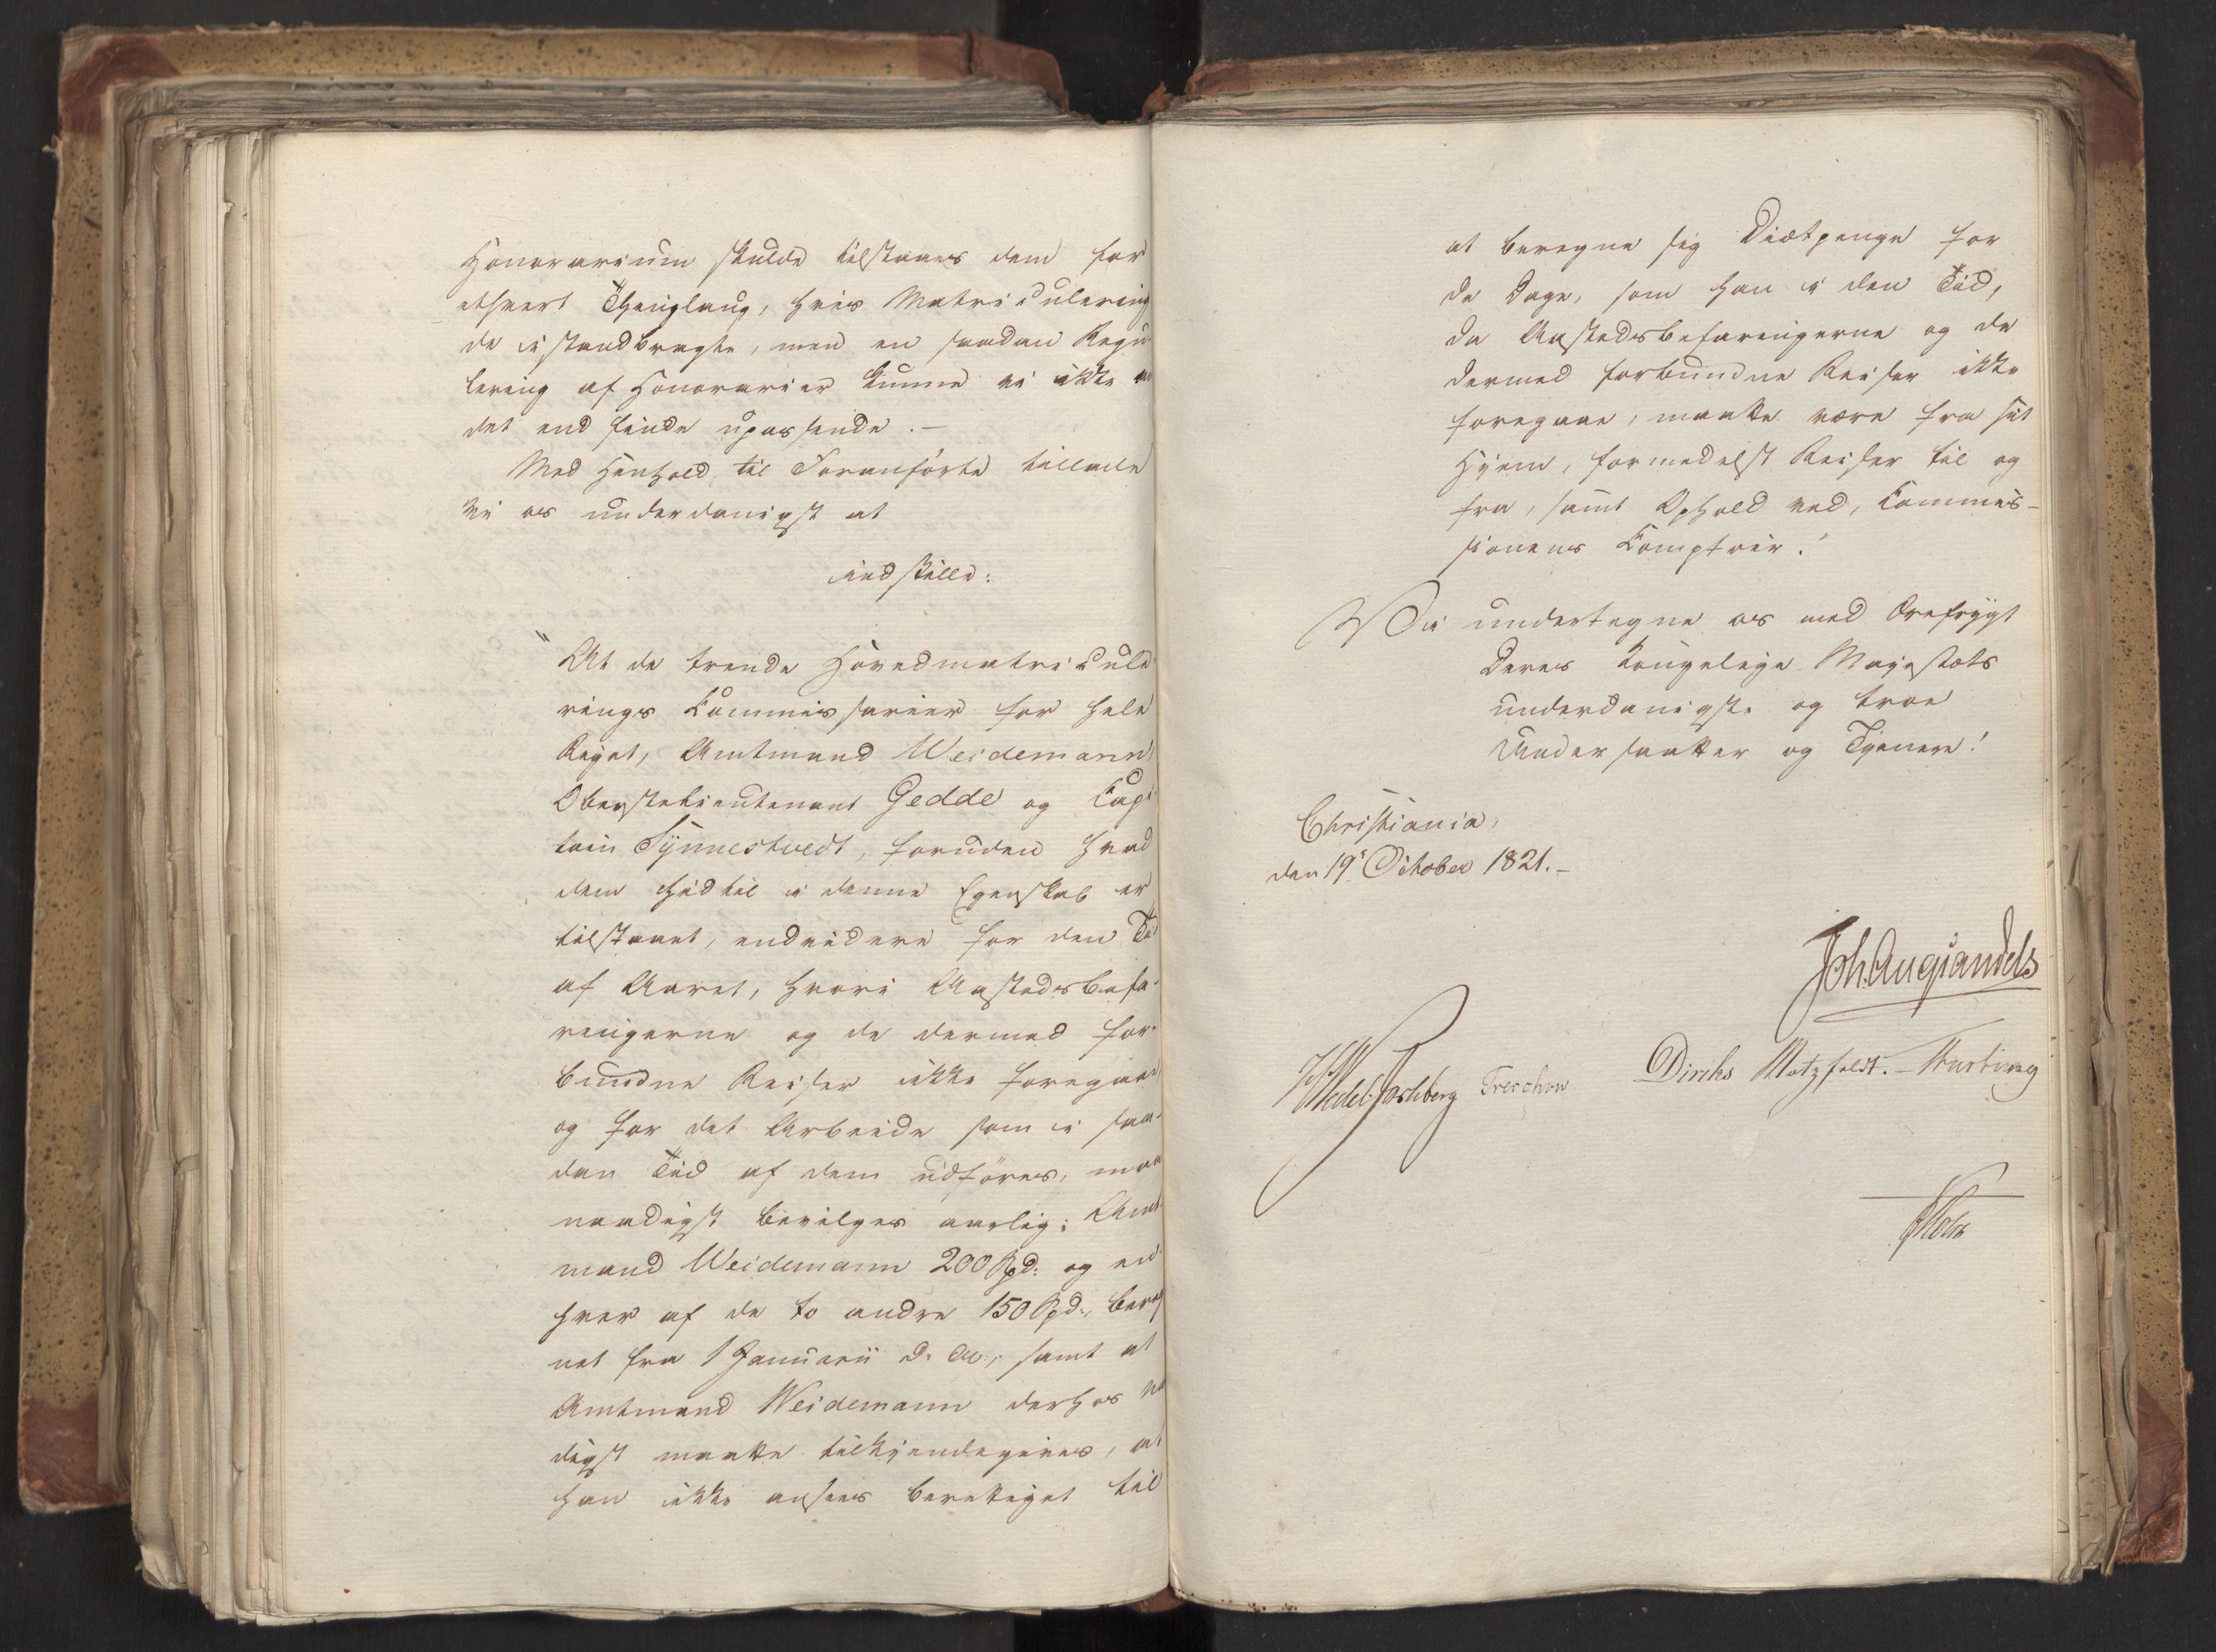 Honorarium skulde tilstaaes dem for
ethvert Thinglaug, hvis Matriculering
de istandbragte, men en saadan Regu-
lering af Honorarier kunne vi ikke an
det end finde upassende. -
Med Henhold til Foranførte tillade
vi os underdanigst at
indstille:
"At de trende Hovedmatricule
rings Commissarier for hele
Riget, Amtmand Weidemann
Oberstelieutenant Gedde og Capi
tain Synnestvedt, foruden hvad
dem hidtil i denne Egenskab er
tilstaaet, endvidere for den Tid
af Aaret, hvori Aastedsbefa-
ringerne og de dermed for-
bundne Reiser ikke foregaae
og for det Arbeide som i saa-
dan Tid af dem udføres, maa
naadigst bevilges aarlig: Amt
mand Weidemann 200 Spd: og en
hver af de to andre 150 Spd:, bereg
net fra 1 Januarii d. A., samt at
Amtmand Weidemann derhos na
digst maatte tilkjendegives, at
han ikke ansees berettiget til
at beregne sig Diætpenge for
de Dage, som han i den Tid,
da Aastedsbefaringerne og de
dermed forbundne Reiser ikke
foregaae, maatte være fra sit
Hjem, formedelst Reiser til og
fra, samt Ophold ved, Commis-
sionens Comptoir."
Vi undertegne os med Ærefrygt
Deres Kongelige Majestæts
underdanigste og troe
Undersaatter og Tjenere!
Christiania,
den 19' October 1821. -
Joh. Aug Sandels
HWedel Jarlsberg Treschow
Diriks Motzfeldt. - Krebs